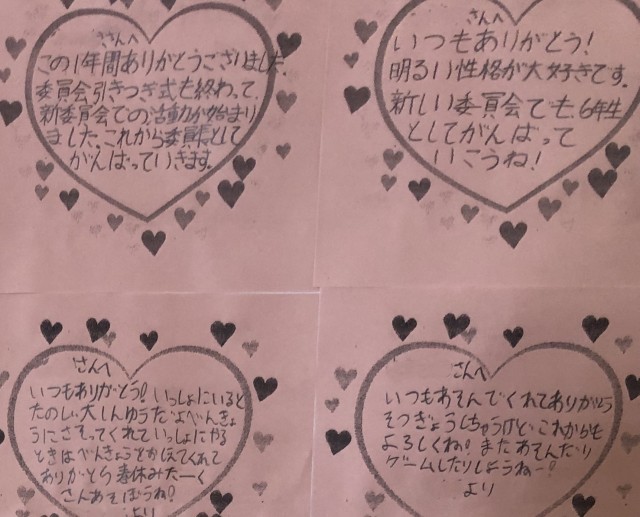 さんへ
この1年間ありがとうございました。
委員会引きつぎ式も終わって、
新委員会での活動が始まり
ました。これから委員長として
がんばっていきます。
さんへ
いつもありがとう!
明るい性格が大好きです。
新しい委員会でも、6年生
としてがんばって
いこうね!
さんへ
いつもありがとう!いっしょにいると
たのしい大しんゆうだよべんきょ
うにさそってくれていっしょにやる
ときはべんきょうとかおしえてくれて
ありがとう春休みたーく
さんあそぼうね!
より
さんへ
いつもあそんでくれてありがとう
そつぎょうしちゃうけどこれからも
よろしくね!またあそんだり
ゲームしたりしようねー!
より